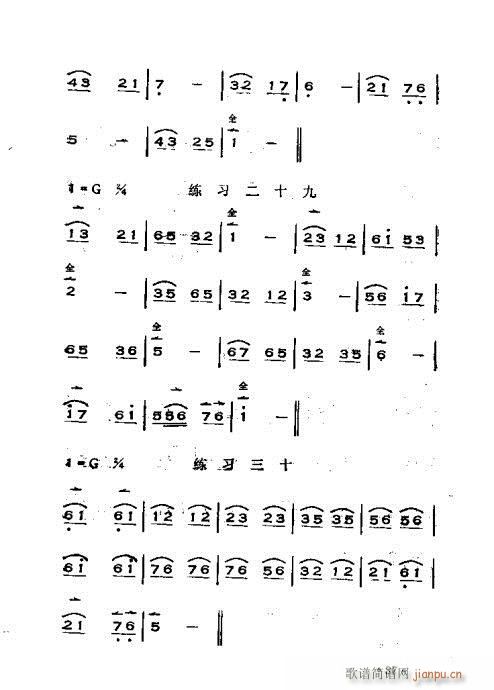 43 21 | 7 – | 32 17 | 6 – | 21 76 |
全
5 – | 43 25 | 1 – ‖
1=G 2/4 练习二十九
全
13 21 | 65 32 | 1 – | 23 12 | 61 53 |
全 全
2 – | 35 65 | 32 12 | 3 – | 56 17 |
全 全
65 36 | 5 – | 67 65 | 32 35 | 6 – |
全
17 61 | 556 76 | 1 – ‖
1=G 2/4 练习三十
61 61 | 12 12 | 23 23 | 35 35 | 56 56 |
61 61 | 76 76 | 56 56 | 32 12 | 21 61 |
21 76 | 5 – ‖
歌谱简谱网 jianpu.cn